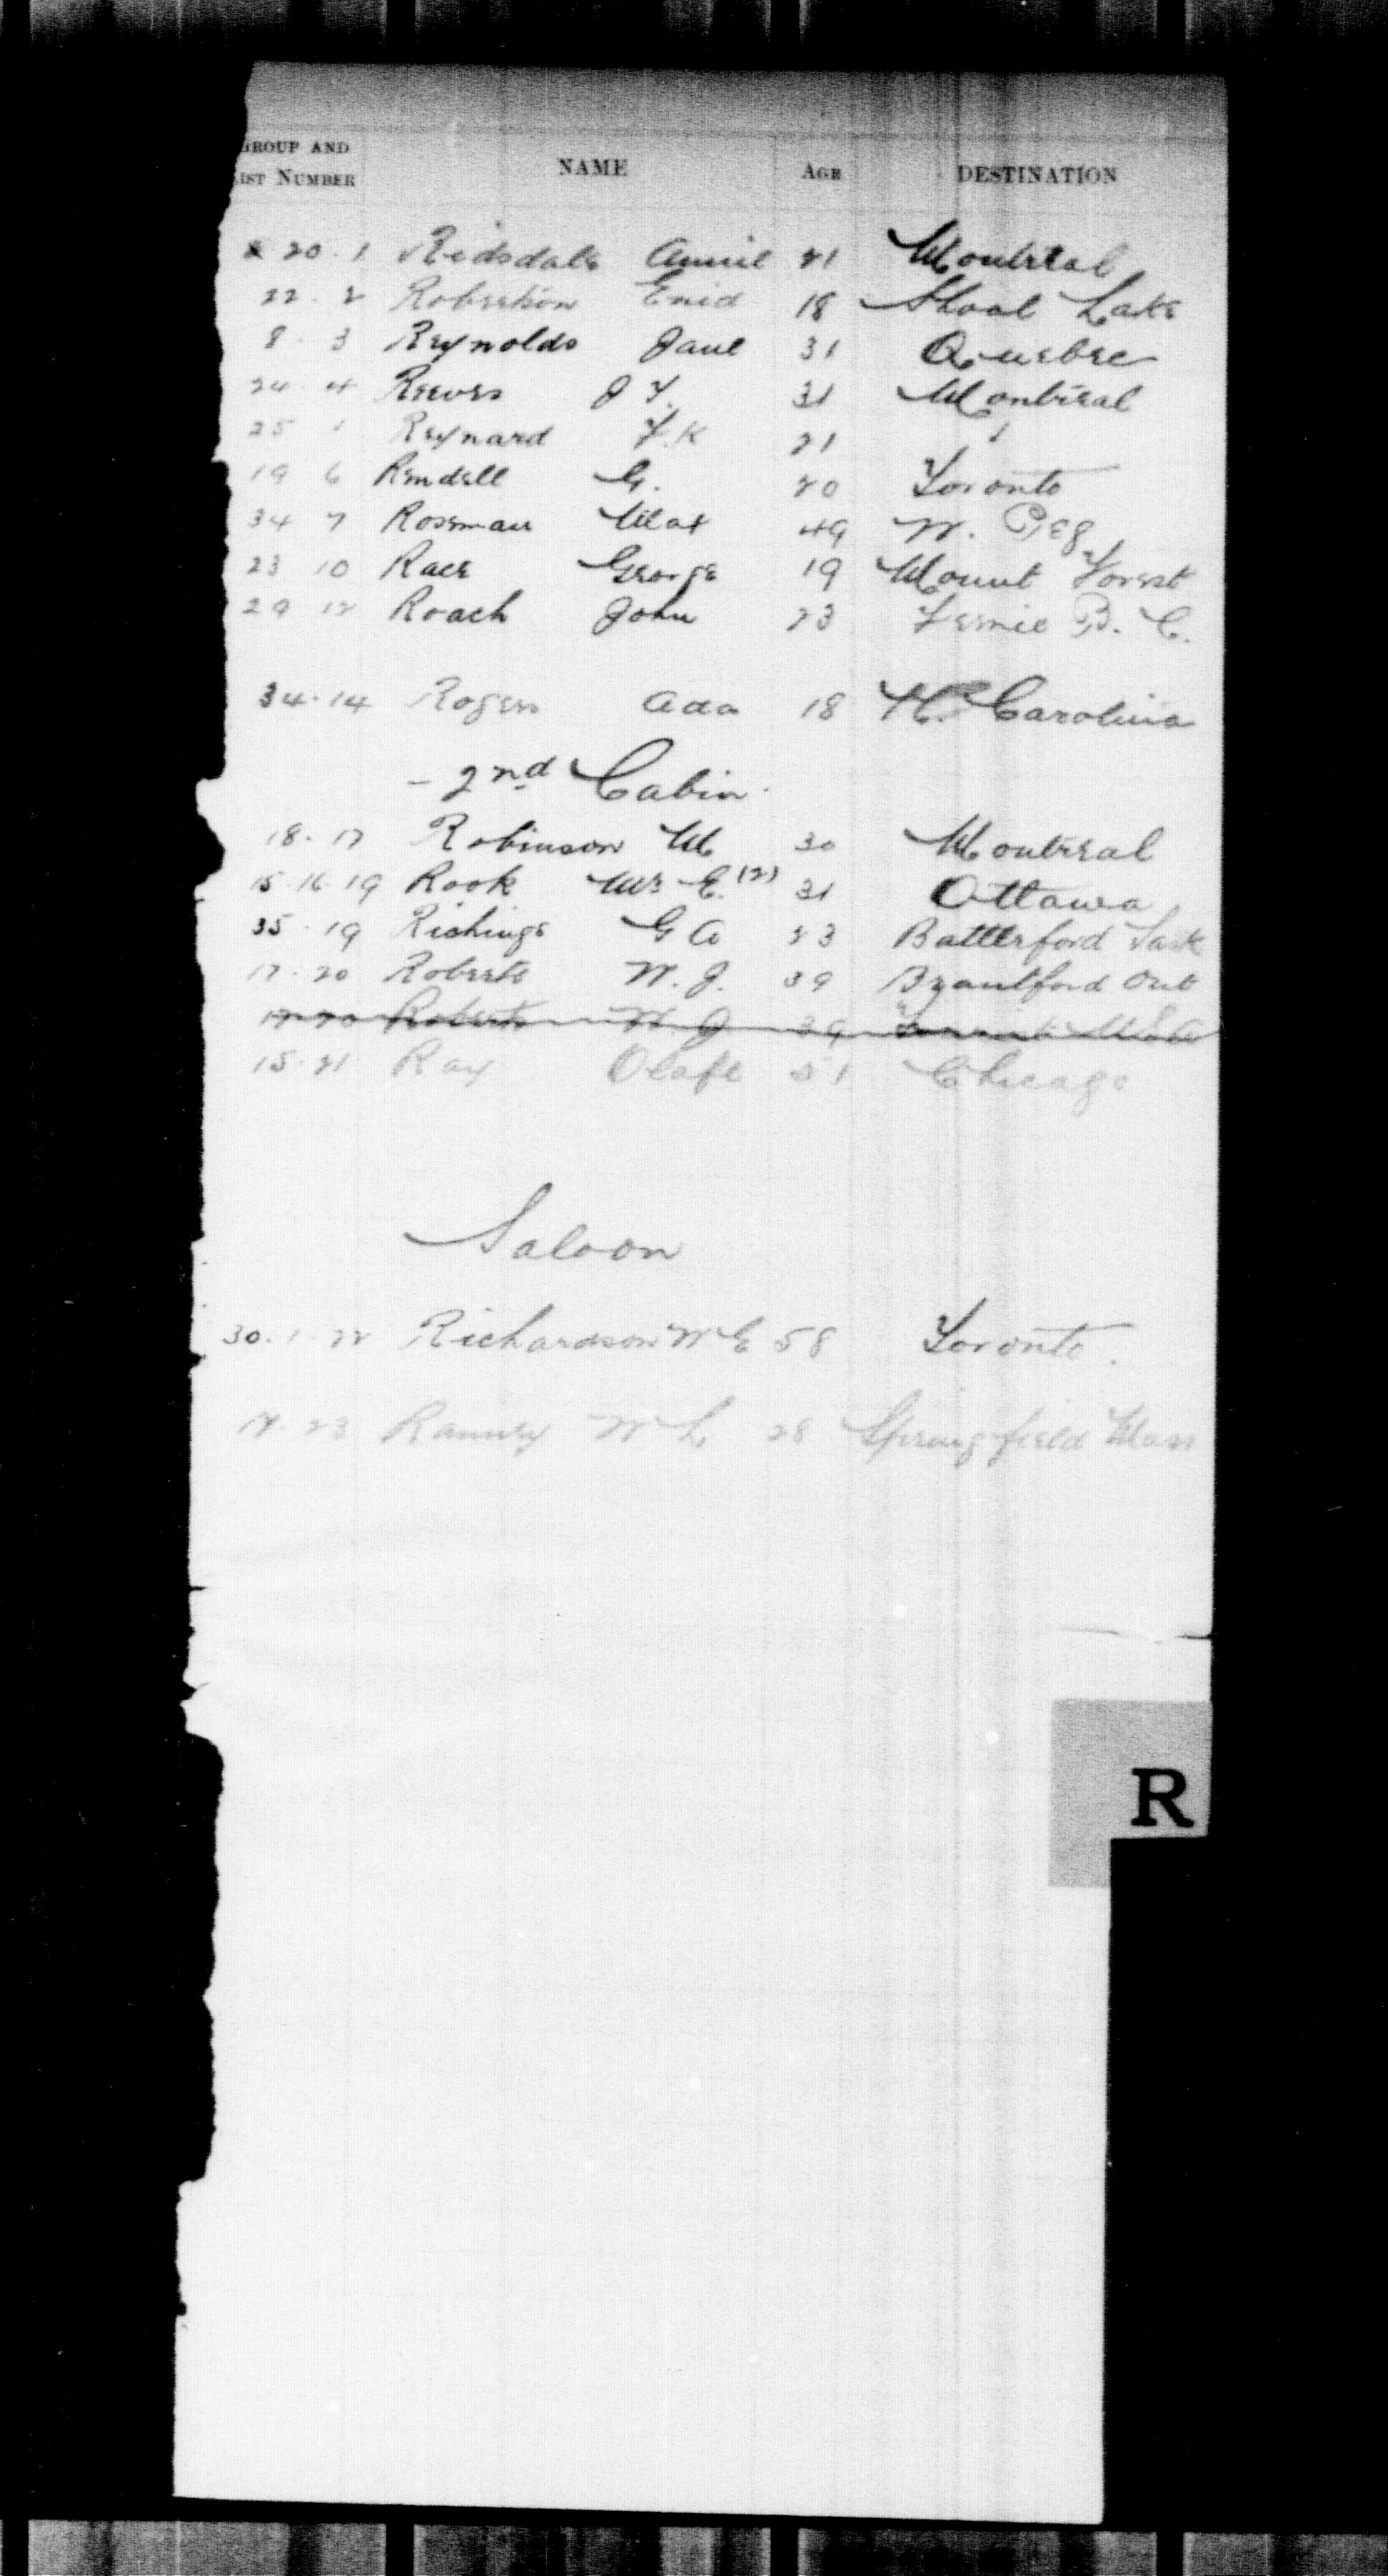 GROUP AND
LIST NUMBER NAME AGE DESTINATION
20. 1 Ridsdale Annie 21 Montreal
22. 2 Robertson Enid 18 Shoal Lake
8. 3 Reynolds Jane 31 Quebec
24. 4 Reeves J F. 31 Montreal
25 Reynard F. K 21
19 6 Rendell G. 20 Toronto
34 7 Roseman Max 49 W. Peg
23 10 Race George 19 Mount Forest
29 12 Roach John 23 Fernie B. C.
34. 14 Rogers Ada 18 Carolina
- 2nd Cabin.
18. 17 Robinson M 30 Montreal
15. 16. 19 Rook Mrs E. (2) 31 Ottawa
35. 19 Richings G A 23 Battleford Sask
17. 20 Roberts W. J. 39 Brantford Ont
17 20 Roberts W J 39
15. 21 Ray Olafe 51 Chicago
Saloon
30. 1. 22 Richardson W E 58 Toronto.
23 Ranney W L 28 Springfield Mass
R